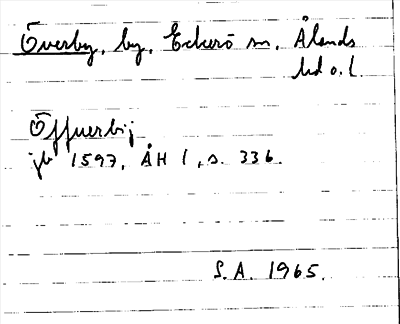 Överby, by, Eckerö sn, Ålands
hd o. l.
Öffuerbij
jb 1597, ÅH 1, s. 336.
S.A. 1965.